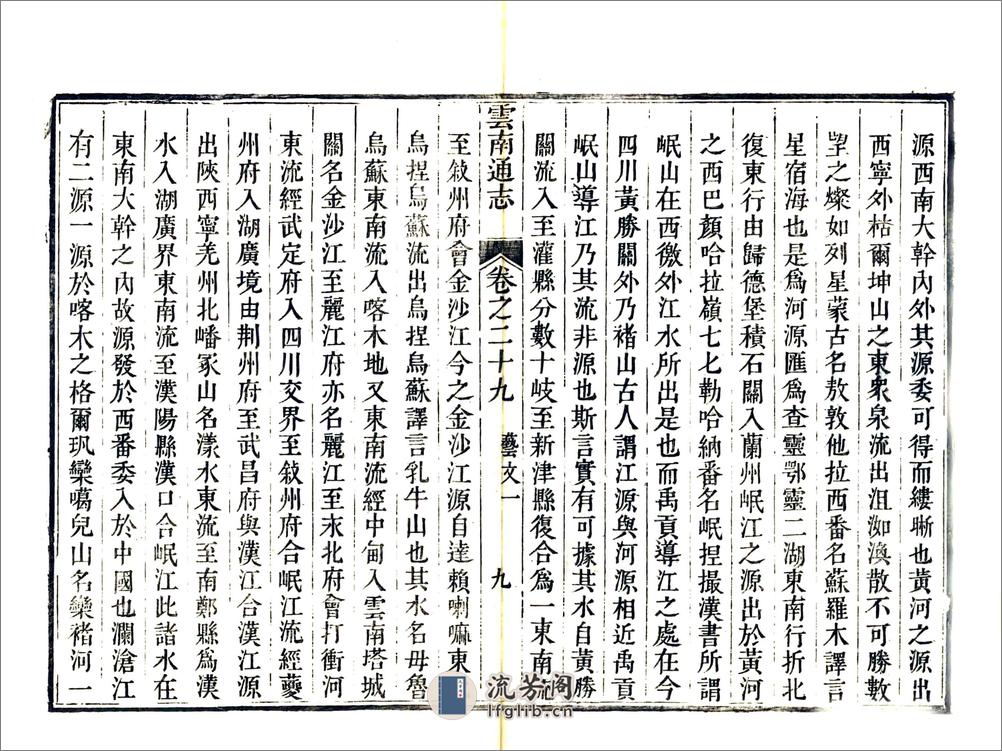 源西南大幹內外其源委可得而縷晰也黃河之源出
西寧外枯爾坤山之東衆泉流出沮洳渙散不可勝數
望之燦如列星蒙古名敖敦他拉西番名蘇羅木譯言
星宿海也是爲河源匯爲查靈鄂靈二湖東南行折北
復東行由歸德堡積石關入蘭州岷江之源出於黃河
之西巴顏哈拉嶺七七勒哈納番名岷捏撮漢書所謂
岷山在西徼外江水所出是也而禹貢導江之處在今
四川黃勝關外乃褚山古人謂江源與河源相近禹貢
岷山導江乃其流非源也斯言實有可據其水自黃勝
關流入至灌縣分數十岐至新津縣復合爲一東南
雲南通志 卷之二十九 藝文一 九
至敘州府會金沙江今之金沙江源自達賴喇嘛東
烏捏烏蘇流出烏捏烏蘇譯言乳牛山也其水名毋魯
烏蘇東南流入喀木地又東南流經中甸入雲南塔城
關名金沙江至麗江府亦名麗江至永北府會打衝河
東流經武定府入四川交界至敘州府合岷江流經夔
州府入湖廣境由荆州府至武昌府與漢江合漢江源
出陝西寧羌州北嶓冢山名漾水東流至南鄭縣爲漢
水入湖廣界東南流至漢陽縣漢口合岷江此諸水在
東南大幹之內故源發於西番委入於中國也瀾滄江
有二源一源於喀木之格爾玑欒噶兒山名欒褚河一
流芳阁
lfglib.cn